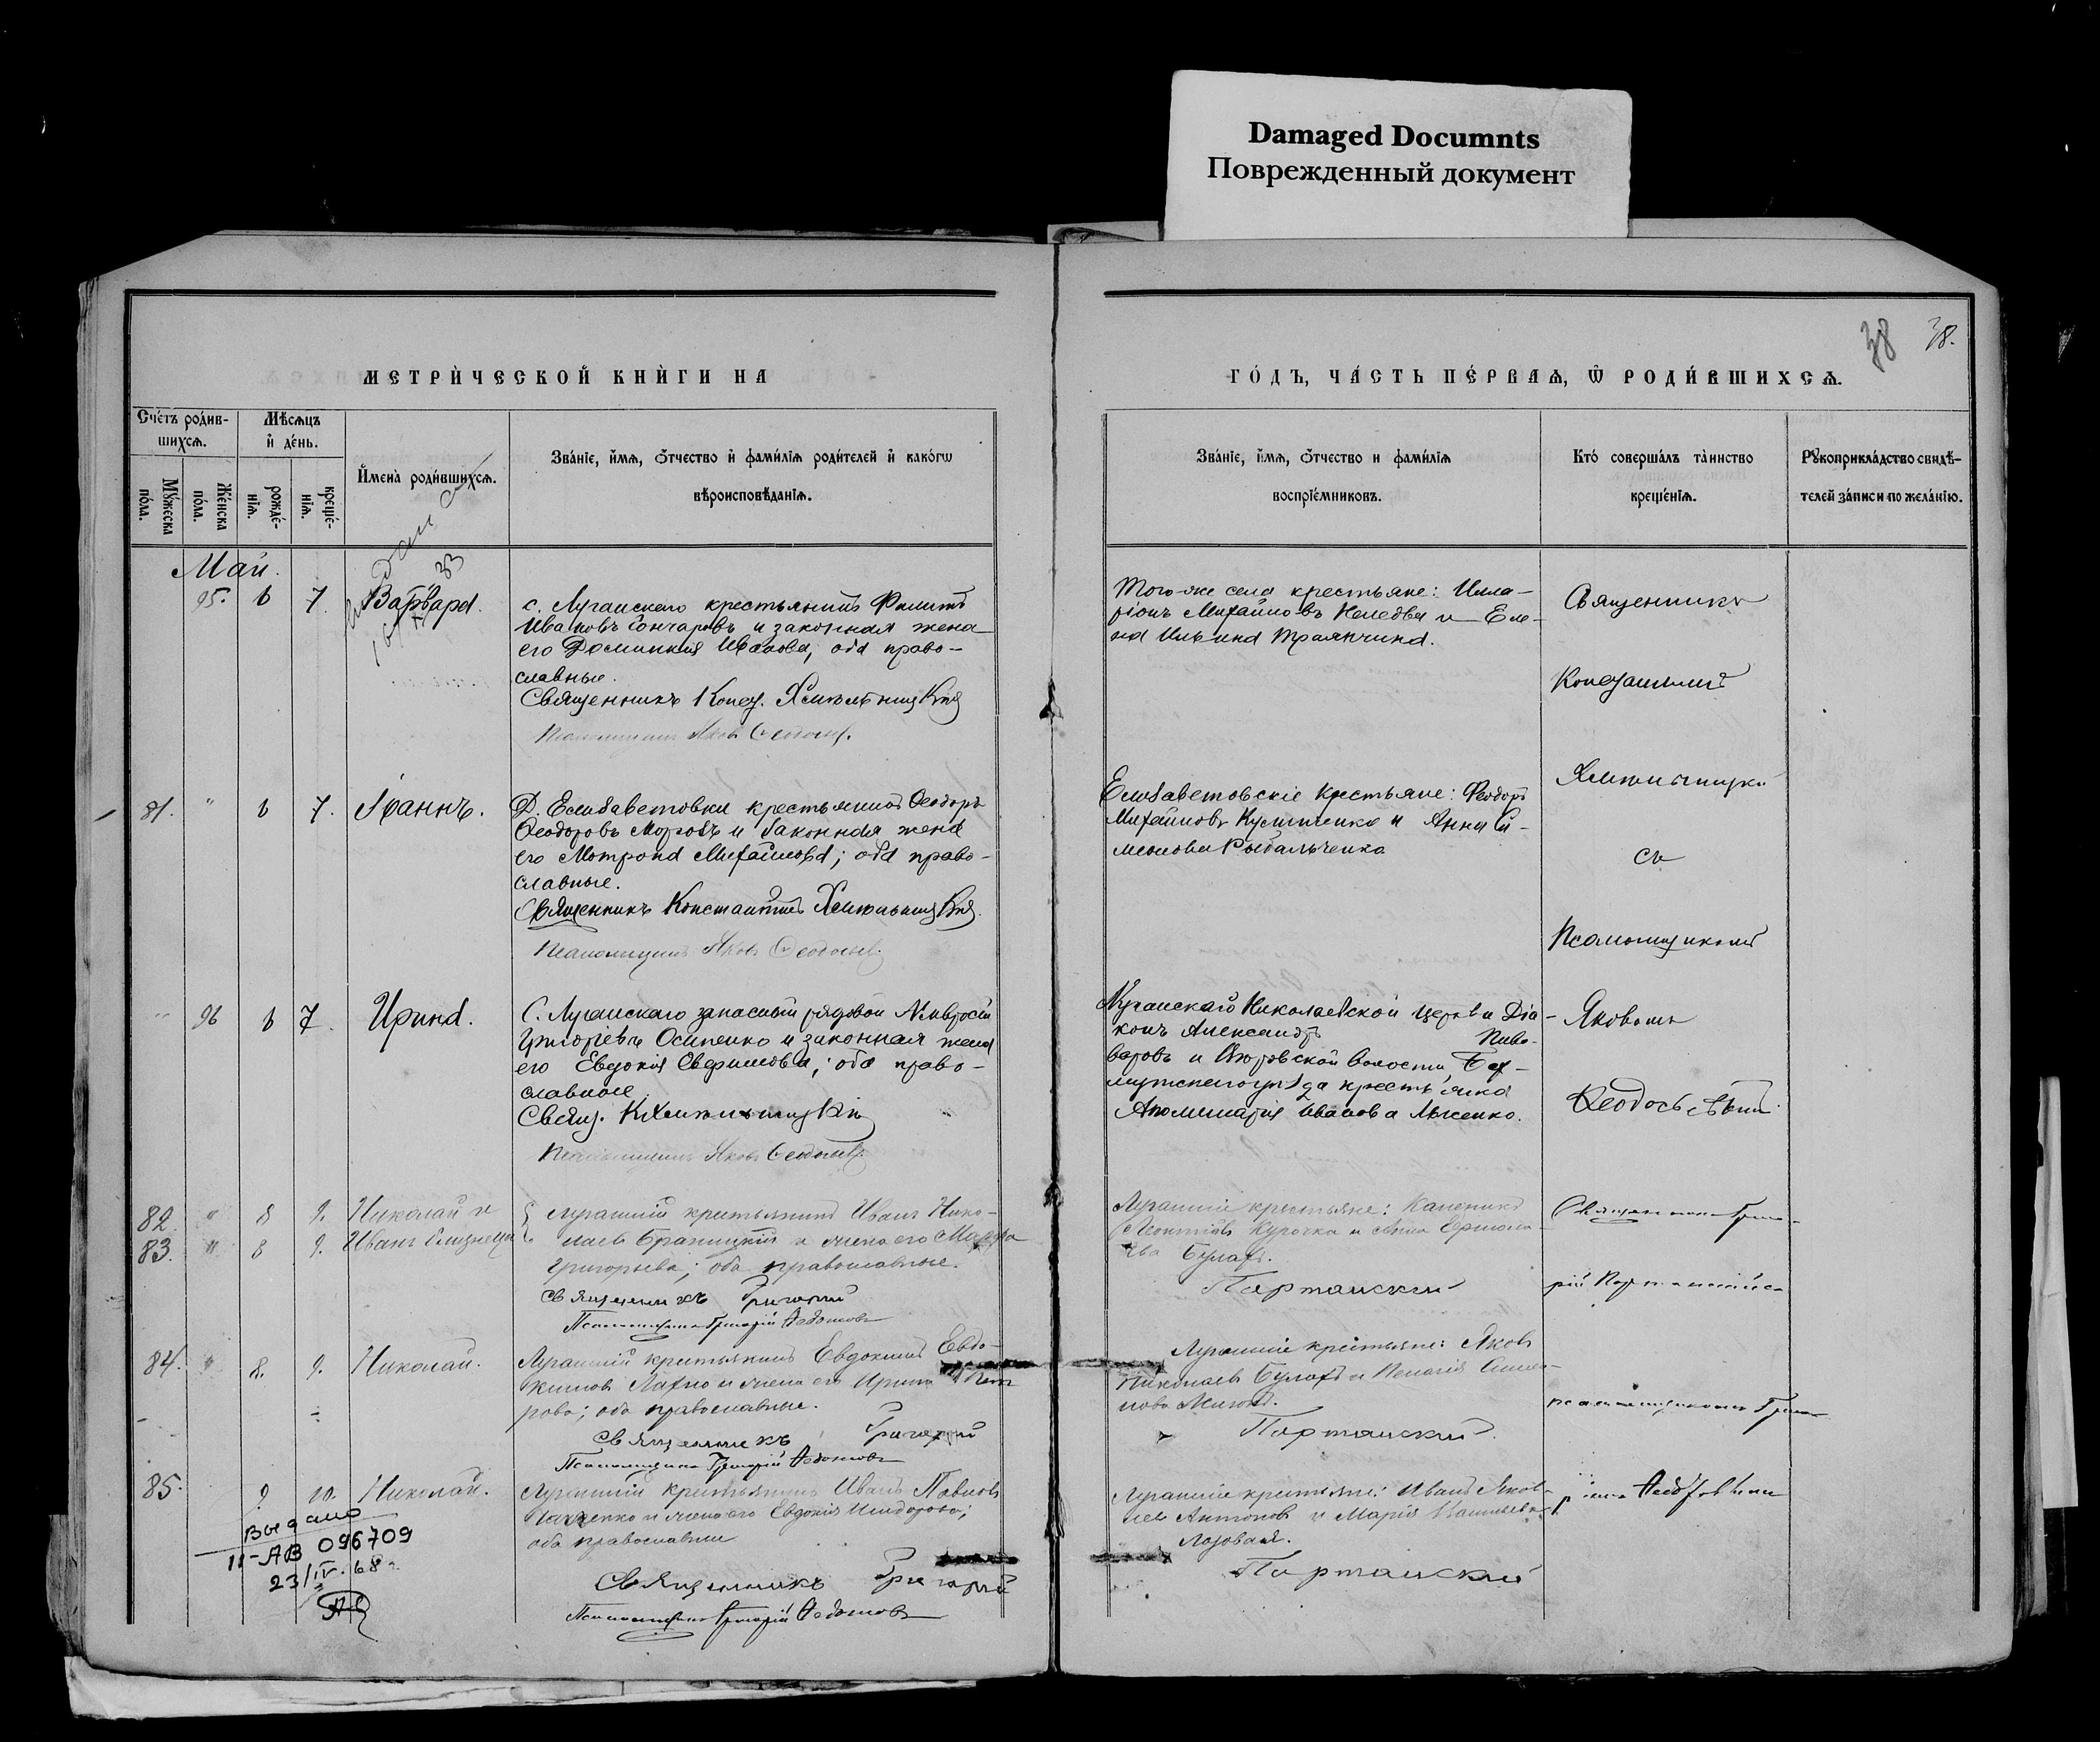 Damaged Documnts
Поврежденный документ
38 38.
МЕТРИ́ЧЕСКОЙ КНИ́ГИ НА
ГО́ДЪ, ЧА́СТЬ ПЕ́РВАѦ, Ѽ РОДИ́ВШИХСѦ.
Сче́тъ роди́в-
шихсѧ.
Мꙋ́жеска по́ла.
Же́нска по́ла.
Мѣ́сѧцъ
и҆ де́нь.
рожде́-
нїѧ.
креще́-
нїѧ.
И҆мена̀ роди́вшихсѧ.
Зва́нїе, и҆́мѧ, ѻ҆́тчество и҆ фами́лїѧ роди́телей и҆ како́гѡ
вѣроисповѣ́данїѧ.
Зва́нїе, и҆́мѧ, ѻ҆́тчество и фами́лїѧ
воспрїе́мниковъ.
Кто́ соверша́лъ та́инство
креще́нїѧ.
Рꙋкоприкла́дство свидѣ́-
телей за́писи по жела́нїю.
Май.
95. 6 7. Варвара.
с. Луганскаго крестьянинъ Филиппъ
Ивановъ Гончаровъ и законная жена
его Домникия Иванова, оба право-
славные.
Священникъ Конст. Хмѣльницкій
Псаломщикъ Яковъ Феодосьев.
Того-же села крестьяне: Ила-
ріонъ Михайловъ Неледва и Еле-
на Ильина
Священникъ
Константинъ
Хмѣльницкій
съ
Псаломщикомъ
Яковомъ
Феодосьевымъ
81. " 6 7. Іоаннъ.
Д. Елисаветовки крестьянинъ Феодоръ
Феодоровъ Морозъ и законная жена
его Матрона Михайлова; оба право-
славные.
Священникъ Константинъ Хмѣльницкій.
Псаломщикъ Яковъ Феодосьев.
Елисаветовскіе крестьяне: Феодоръ
Михайловъ и Анна Си-
меонова Рыбальченко
" 96 6 7. Ирина.
С. Луганскаго запасный рядовой Амвросій
Григорьевъ Осипенко и законная жена
его Евдокія Евфимова; оба право-
славные
Свящ. К. Хмѣльницкій
Псаломщикъ Яковъ Феодосьев.
Луганской Николаевской церкви Діа-
конъ Александръ Пиво-
варовъ и волости, Бах-
мутскаго уѣзда крестьянка
Аполинарія Иванова Лысенко.
82. " 8 9. Николай и
83. " 8 9. Иванъ близнецы
Луганскій крестьянинъ Иванъ Нико-
лаевъ Браницкій и жена его Марфа
Григорьева; оба православные.
Священникъ Григорій
Псаломщикъ Григорій Федотовъ
Луганскіе крестьяне:
Леонтіевъ Курочка и Анна Ермола-
ева Булахъ.
Портанскій
Священникъ Григо-
рій Портанскій съ
84. " 8. 9. Николай.
Луганскій крестьянинъ Евдокимъ Евдо-
кимовъ Лахно и жена его Ирина Пет-
рова; оба православные.
Священникъ Григорій
Псаломщикъ Григорій Федотовъ
Луганскіе крестьяне: Яковъ
Николаевъ Булахъ и Пелагія
нова
Портанскій
псаломщикомъ Григо-
85. 9. 10. Николай.
Луганскій крестьянинъ Иванъ Павловъ
и жена его Евдокія Исидорова;
оба православные
Священникъ Григорій
Псаломщикъ Григорій Федотовъ
Луганскіе крестьяне: Иванъ Яков-
левъ Антоновъ и Марія Васильева
Лозовая.
Портанскій
ріемъ Федотовымъ
Выдано
II-АВ 096709
23/IV.68г